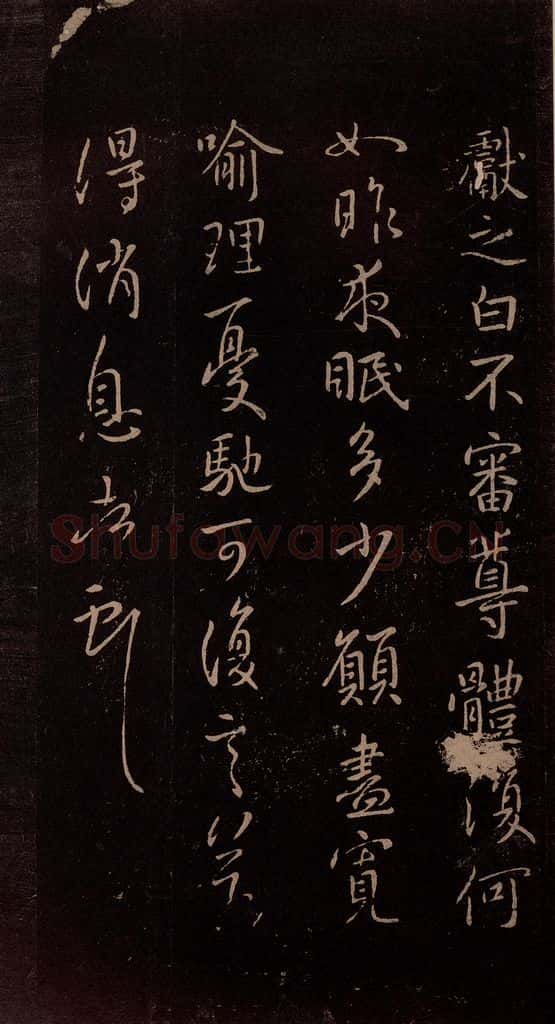 獻之白不審尊體復何
如昨夜眠多少願盡寬
喻理憂馳可復言
得消息
Shufawang.CN